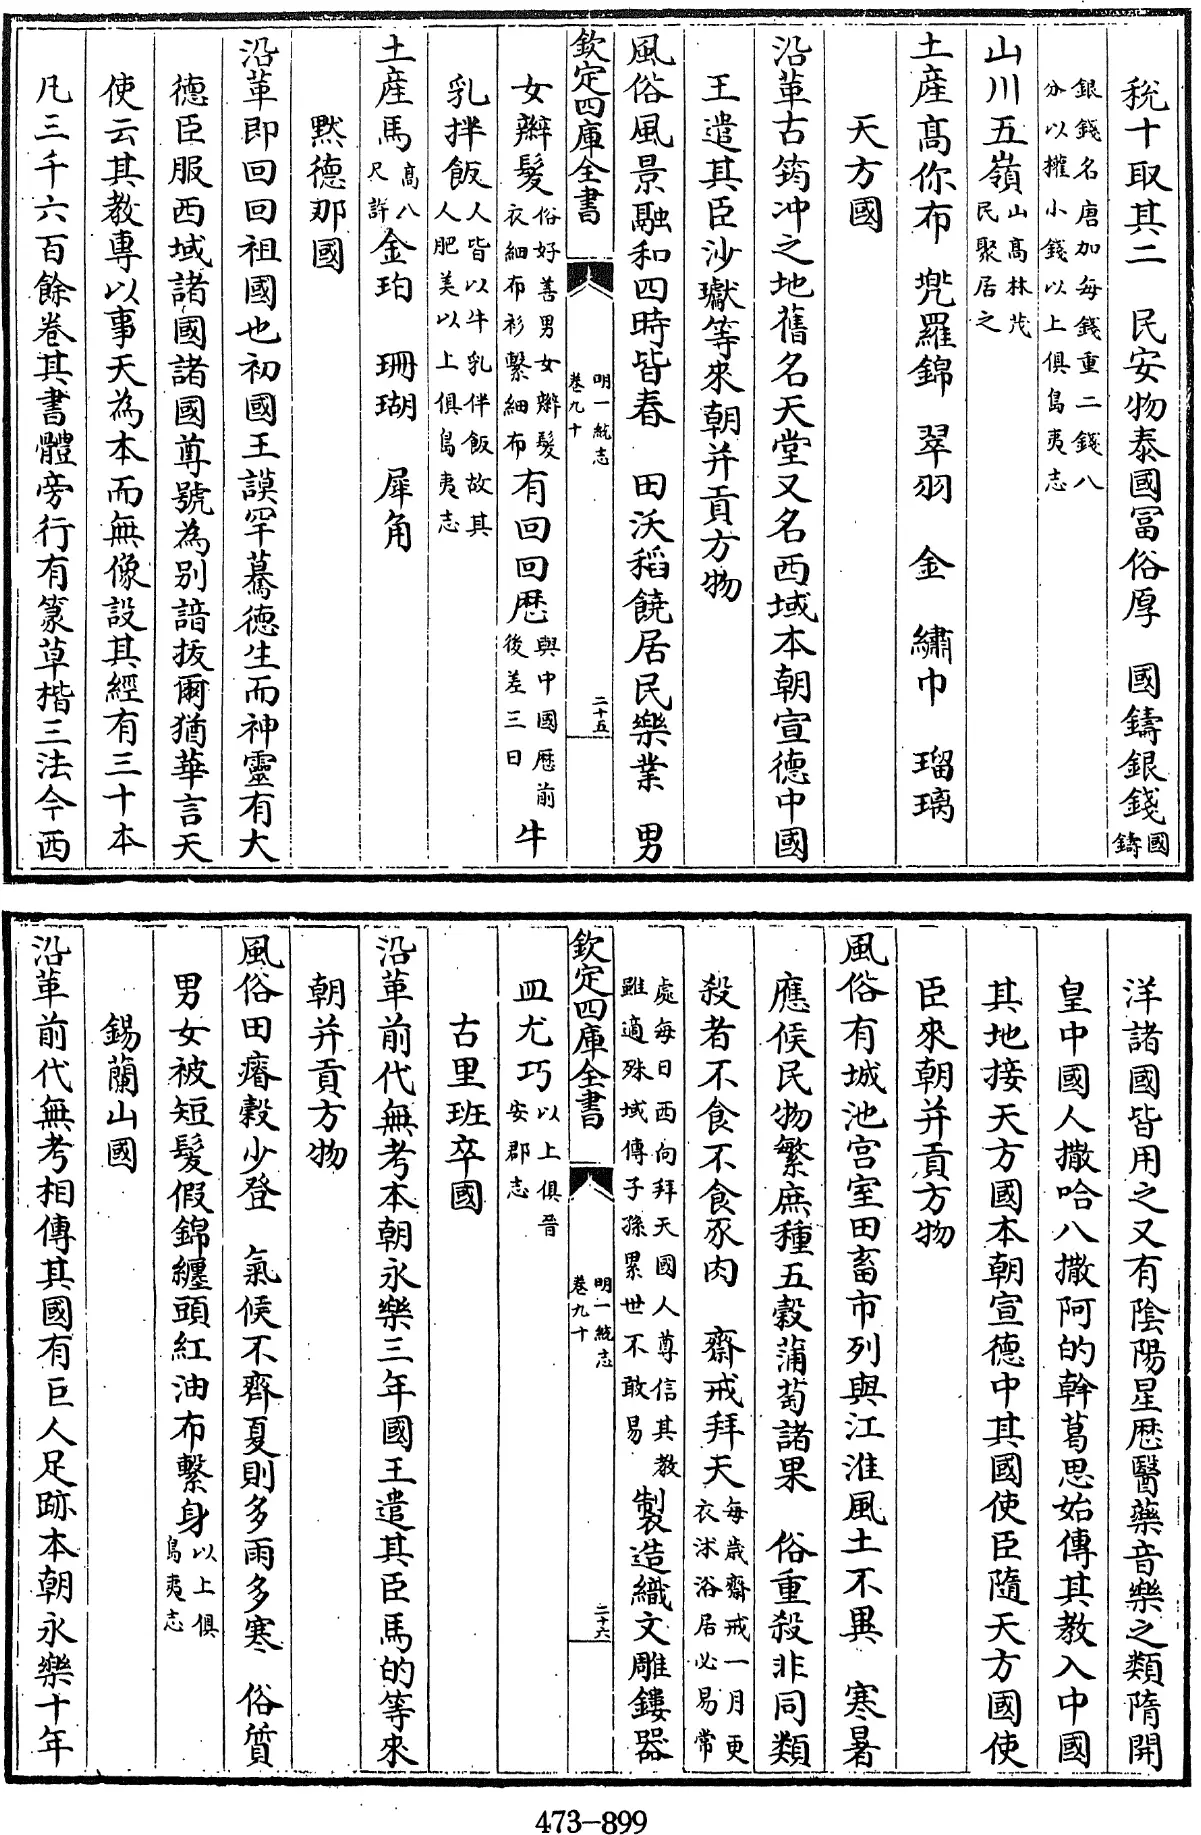 稅十取其二　民安物泰國冨俗厚　國鑄銀錢國鑄
銀錢名唐加每錢重二錢八
分以攉小錢以上俱島夷志
山川五嶺山髙林茂民聚居之
土産髙你布　兠羅錦　翠羽　金　繡巾　瑠璃
天方國
沿革古筠冲之地舊名天堂又名西域本朝宣德中國
王遣其臣沙瓛等來朝并貢方物
風俗風景融和四時皆春　田沃稻饒居民樂業　男
欽定四庫全書
明一統志
卷九十
二十五
女辮髮俗好善男女辮髮衣細布衫繫細布有回回厯與中國厯前後差三日牛
乳拌飯人皆以牛乳伴飯故其人肥美以上俱島夷志
土産馬髙八尺許金珀　珊瑚　犀角
黙德那國
沿革即回回祖國也初國王謨罕驀德生而神靈有大
德臣服西域諸國諸國尊號為别諳㧞爾猶華言天
使云其教專以事天為本而無像設其經有三十本
凡三千六百餘卷其書體旁行有篆草楷三法今西
洋諸國皆用之又有陰陽星厯醫藥音樂之類隋開
皇中國人撒哈八撒阿的幹葛思始傳其教入中國
其地接天方國本朝宣德中其國使臣隨天方國使
臣來朝并貢方物
風俗有城池宫室田畜市列與江淮風土不異　寒暑
應候民物繁庶種五穀蒲萄諸果　俗重殺非同類
殺者不食不食豕肉　齋戒拜天每歲齋戒一月更衣沐浴居必易常
處每日西向拜天國人尊信其教
雖適殊域傳子孫累世不敢易　製造織文雕鏤器
欽定四庫全書
明一統志
卷九十
二十六
皿尤巧以上俱晉安郡志
古里班卒國
沿革前代無考本朝永樂三年國王遣其臣馬的等來
朝并貢方物
風俗田瘠穀少登　氣候不齊夏則多雨多寒　俗質
男女被短髮假錦纏頭紅油布繫身以上俱島夷志
錫蘭山國
沿革前代無考相傳其國有巨人足跡本朝永樂十年
473-899